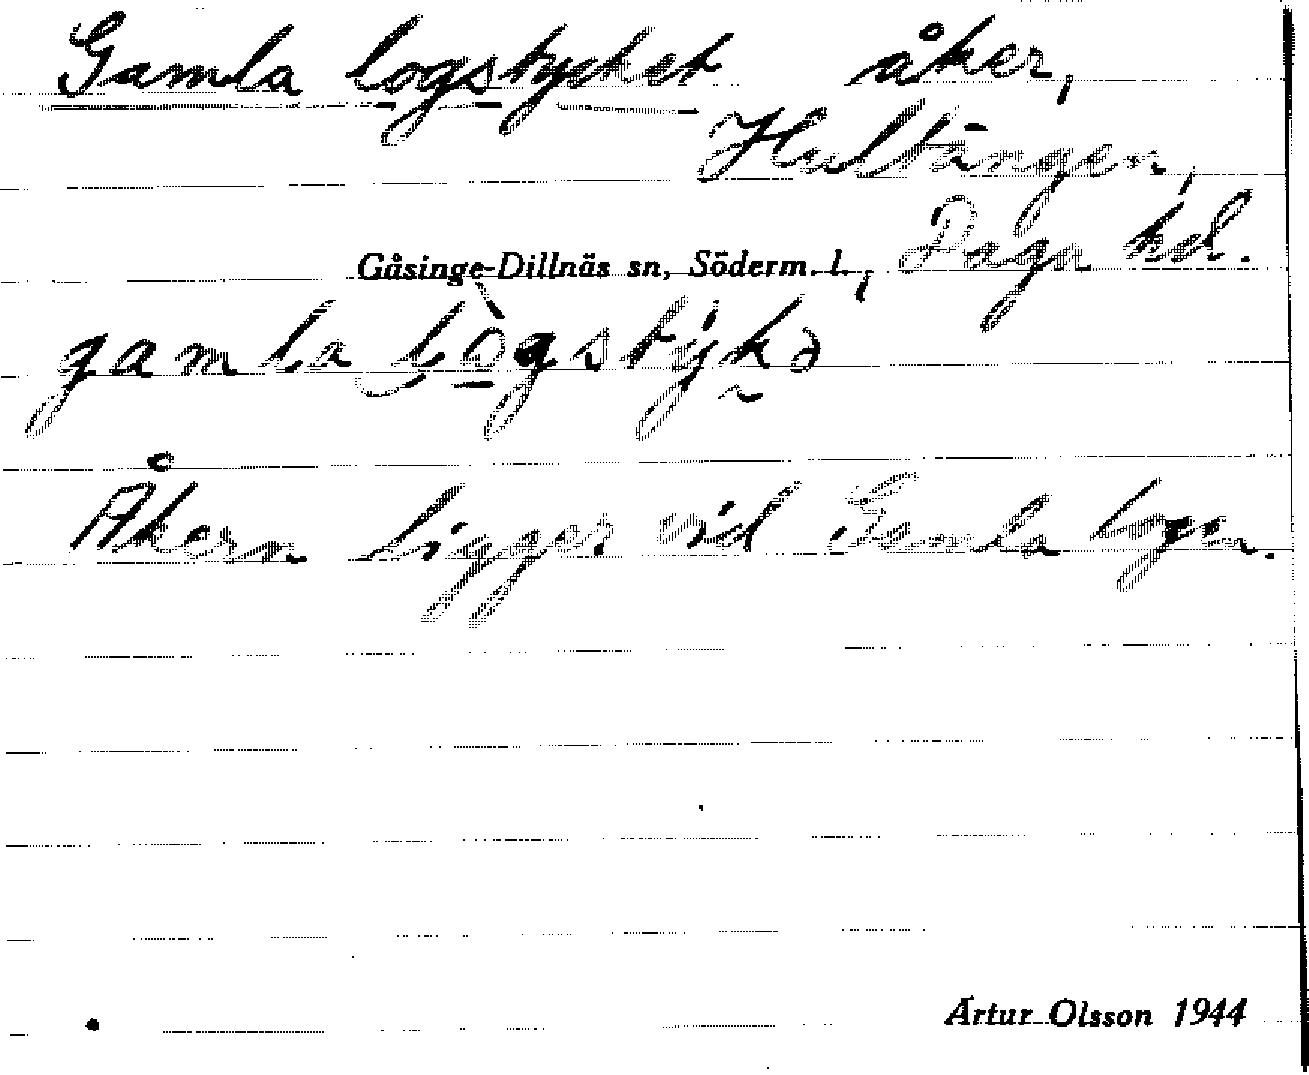 Gamla logstycket åker,
Hultängen,
Gåsinge-Dillnäs sn, Söderm. l., Daga hd.
gamla lògstýkə
Åkern ligger vid Gamla logen.
Artur Olsson 1944